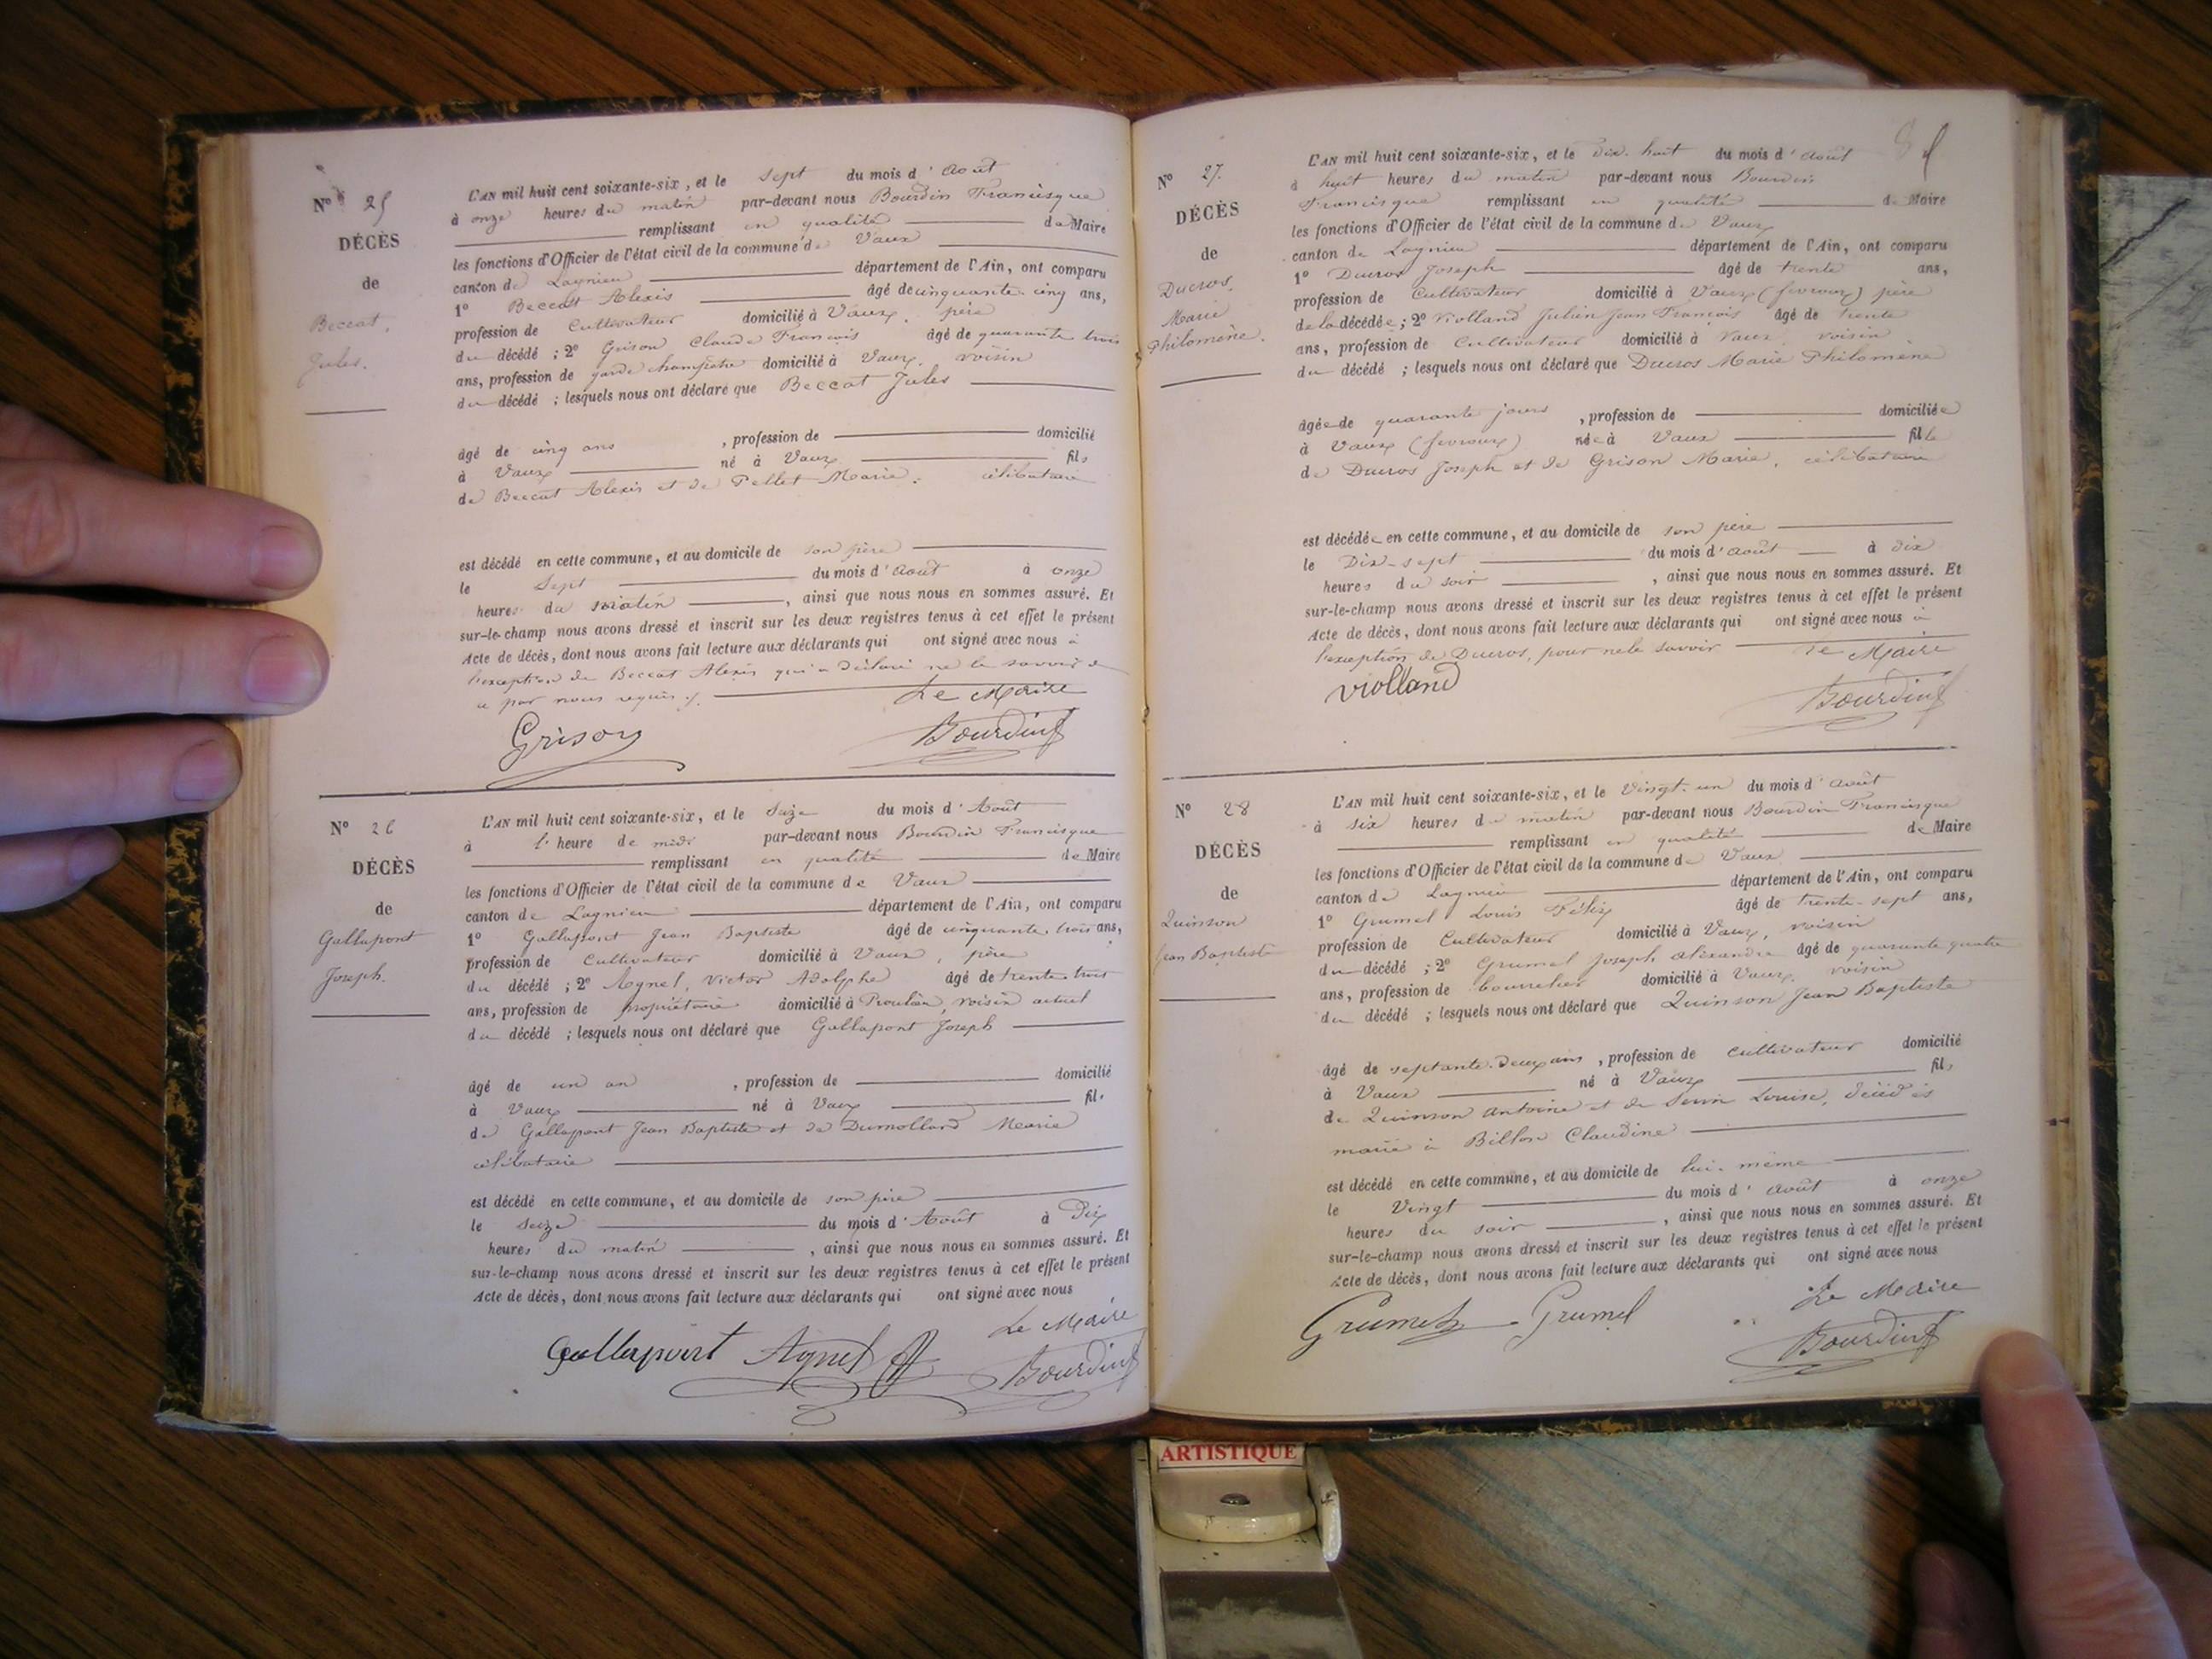 N° 25
DÉCÈS
de
Beccat,
Jules.
L'AN mil huit cent soixante-six, et le sept du mois d'Août
à onze heures du matin par-devant nous Bourdin Francisque
remplissant en qualité de Maire
les fonctions d'Officier de l'état civil de la commune de Vaux
canton de Lagnieu département de l'Ain, ont comparu
1° Beccat Alexis âgé de cinquante-cinq ans,
profession de Cultivateur domicilié à Vaux, père
du décédé ; 2° Grison Claude François âgé de quarante trois
ans, profession de garde champêtre domicilié à Vaux, voisin
du décédé ; lesquels nous ont déclaré que Beccat Jules
âgé de cinq ans , profession de domicilié
à Vaux né à Vaux fils
de Beccat Alexis et de Pellet Marie. célibataire
est décédé en cette commune, et au domicile de son père
le Sept du mois d'Août à onze
heures du matin , ainsi que nous nous en sommes assuré. Et
sur-le-champ nous avons dressé et inscrit sur les deux registres tenus à cet effet le présent
Acte de décès, dont nous avons fait lecture aux déclarants qui ont signé avec nous à
l'exception de Beccat Alexis qui a déclaré ne le savoir de
ce par nous requis
Le Maire
Grison Bourdin
N° 26
DÉCÈS
de
Gallapont
Joseph.
L'AN mil huit cent soixante-six, et le Seize du mois d'Août
à l'heure de midi par-devant nous Bourdin Francisque
remplissant en qualité de Maire
les fonctions d'Officier de l'état civil de la commune de Vaux
canton de Lagnieu département de l'Ain, ont comparu
1° Gallapont Jean Baptiste âgé de cinquante trois ans,
profession de Cultivateur domicilié à Vaux, père
du décédé ; 2° Agnel, Victor Adolphe âgé de trente trois
ans, profession de propriétaire domicilié à voisin actuel
du décédé ; lesquels nous ont déclaré que Gallapont Joseph
âgé de un an , profession de domicilié
à Vaux né à Vaux fils
de Gallapont Jean Baptiste et de Dumollard Marie
célibataire
est décédé en cette commune, et au domicile de son père
le Seize du mois d'Août à Dix
heures du matin , ainsi que nous nous en sommes assuré. Et
sur-le-champ nous avons dressé et inscrit sur les deux registres tenus à cet effet le présent
Acte de décès, dont nous avons fait lecture aux déclarants qui ont signé avec nous
Le Maire
Gallapont Agnel Bourdin
N° 27.
DÉCÈS
de
Ducros,
Marie
Philomène.
L'AN mil huit cent soixante-six, et le Dix-huit du mois d'Août
à huit heures du matin par-devant nous Bourdin
Francisque remplissant en qualité de Maire
les fonctions d'Officier de l'état civil de la commune de Vaux
canton de Lagnieu département de l'Ain, ont comparu
1° Ducros Joseph âgé de trente ans,
profession de Cultivateur domicilié à Vaux (fevroux) père
de la décédée ; 2° Violland Julien Jean François âgé de trente
ans, profession de Cultivateur domicilié à Vaux, voisin
du décédé ; lesquels nous ont déclaré que Ducros Marie Philomène
âgée de quarante jours , profession de domiciliée
à Vaux (fevroux) née à Vaux fille
de Ducros Joseph et de Grison Marie, célibataire
est décédée en cette commune, et au domicile de son père
le Dix-sept du mois d'Août à dix
heures du soir , ainsi que nous nous en sommes assuré. Et
sur-le-champ nous avons dressé et inscrit sur les deux registres tenus à cet effet le présent
Acte de décès, dont nous avons fait lecture aux déclarants qui ont signé avec nous à
l'exception de Ducros, pour ne le savoir
Le Maire
Violland Bourdin
N° 28
DÉCÈS
de
Quinson
Jean Baptiste
L'AN mil huit cent soixante-six, et le Vingt-un du mois d'Août
à six heures du matin par-devant nous Bourdin Francisque
remplissant en qualité de Maire
les fonctions d'Officier de l'état civil de la commune de Vaux
canton de Lagnieu département de l'Ain, ont comparu
1° Grumel Louis Félix âgé de trente-sept ans,
profession de Cultivateur domicilié à Vaux, voisin
du décédé ; 2° Grumel Joseph Alexandre âgé de quarante quatre
ans, profession de bourrelier domicilié à Vaux, voisin
du décédé ; lesquels nous ont déclaré que Quinson Jean Baptiste
âgé de septante-deux ans , profession de Cultivateur domicilié
à Vaux né à Vaux fils
de Quinson Antoine et de Louise, décédés
marié à Billon Claudine
est décédé en cette commune, et au domicile de lui-même
le Vingt du mois d'Août à onze
heures du soir , ainsi que nous nous en sommes assuré. Et
sur-le-champ nous avons dressé et inscrit sur les deux registres tenus à cet effet le présent
Acte de décès, dont nous avons fait lecture aux déclarants qui ont signé avec nous
Le Maire
Grumel Grumel Bourdin
ARTISTIQUE